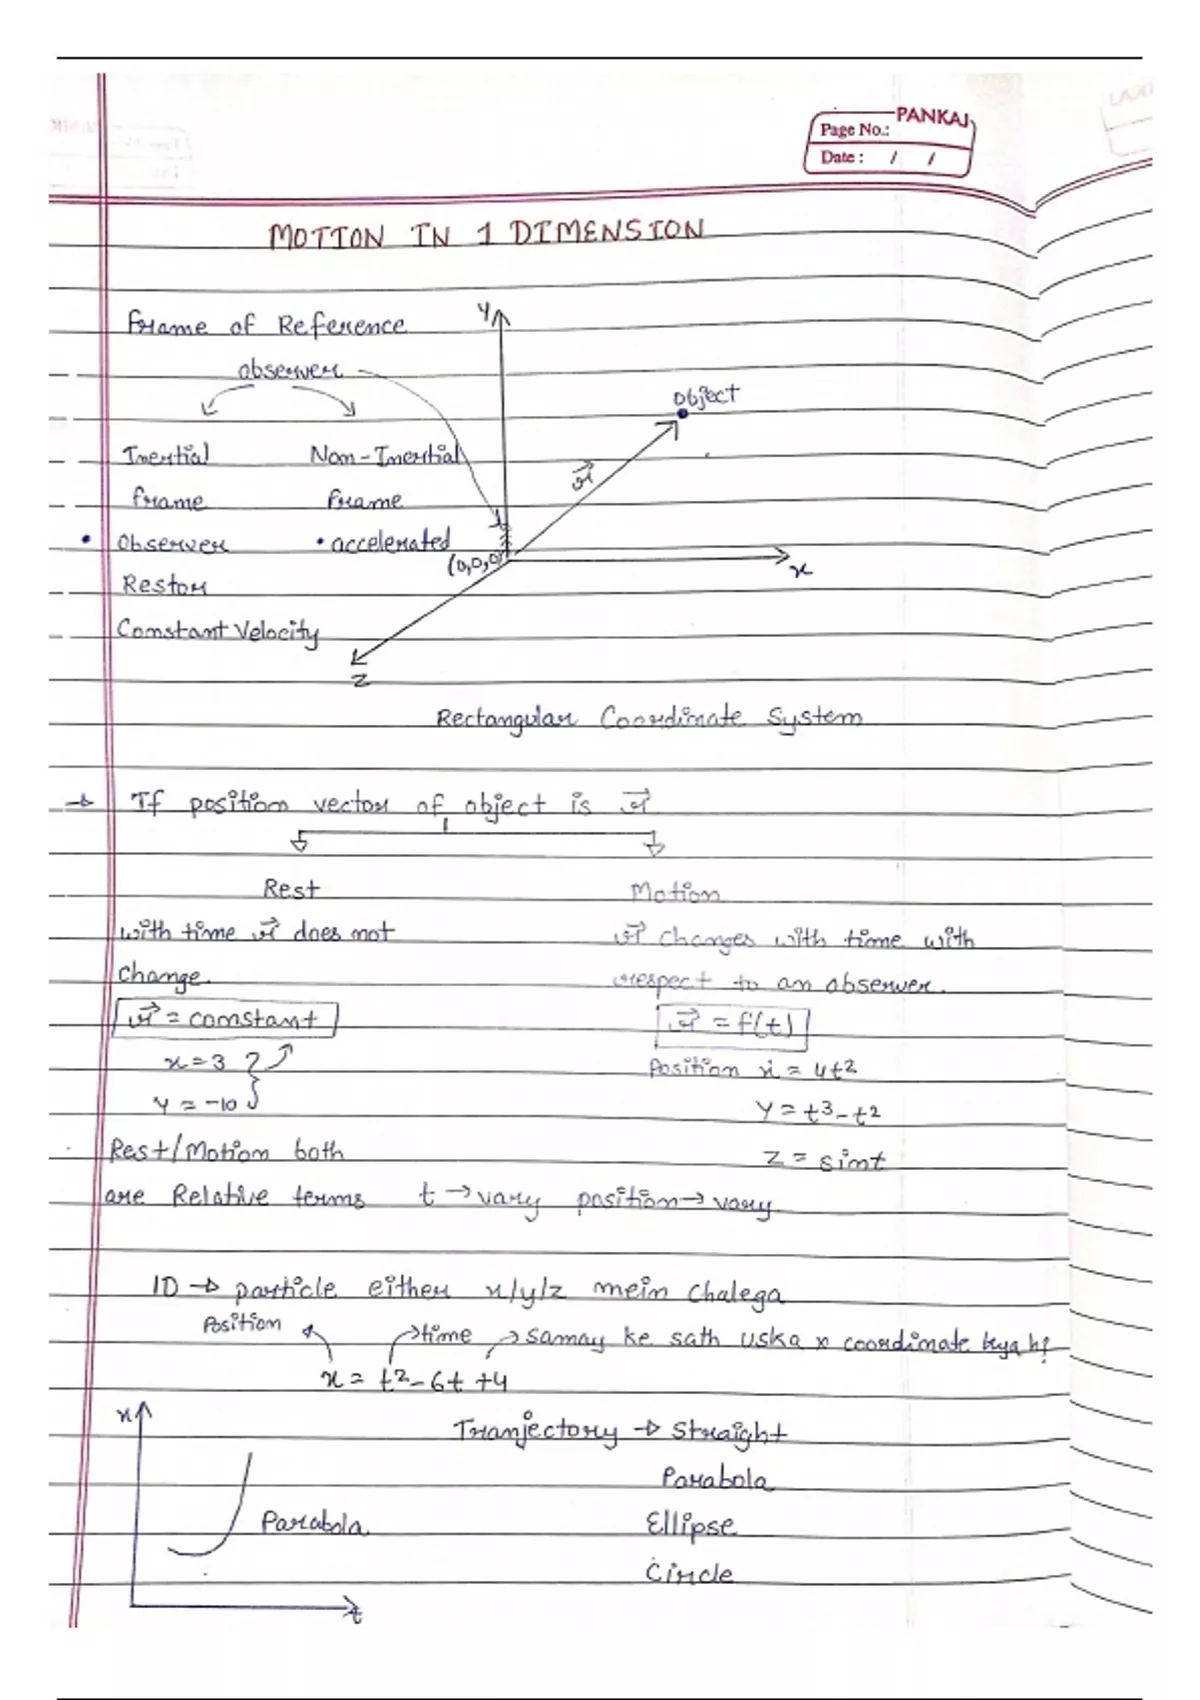 PANKAJ
Page No.:
Date : / /
MOTION IN 1 DIMENSION
Frame of Reference
observer
Inertial Non-Inertial
frame frame
• Observer • accelerated
Rest or
Constant Velocity
Y
object
r⃗
(0,0,0)
x
z
Rectangular Coordinate System
→ If position vector of object is r⃗
Rest Motion
with time r⃗ does not
change.
r⃗ = constant
x = 3
y = -10
r⃗ changes with time with
respect to an observer.
r⃗ = f(t)
Position x = 4t²
Y = t³-t²
Z = sint
Rest/Motion both
are Relative terms t → vary position → vary
1D → particle either x/y/z mein chalega
Position time → samay ke sath uska x coordinate kya h?
x = t² - 6t + 4
x
Parabola
t
Tranjectory → Straight
Parabola
Ellipse
Circle